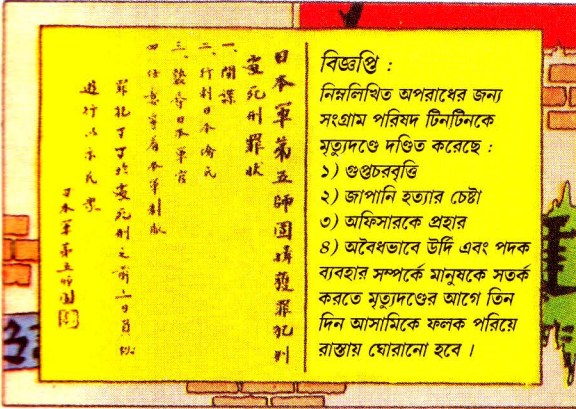 日本軍第五師團獲罪犯判
處死刑罪狀
一、間諜
二、行刺日本僑民
三、日本軍官
四、任意穿着本軍制服
罪犯丁丁於處死刑之前三日負枷
遊行以示民衆
日本軍第五師團
বিজ্ঞপ্তি :
নিম্নলিখিত অপরাধের জন্য
সংগ্রাম পরিষদ টিনটিনকে
মৃত্যুদণ্ডে দণ্ডিত করেছে :
১) গুপ্তচরবৃত্তি
২) জাপানি হত্যার চেষ্টা
৩) অফিসারকে প্রহার
৪) অবৈধভাবে উর্দি এবং পদক
ব্যবহার সম্পর্কে মানুষকে সতর্ক
করতে মৃত্যুদণ্ডের আগে তিন
দিন আসামিকে ফলক পরিয়ে
রাস্তায় ঘোরানো হবে ।